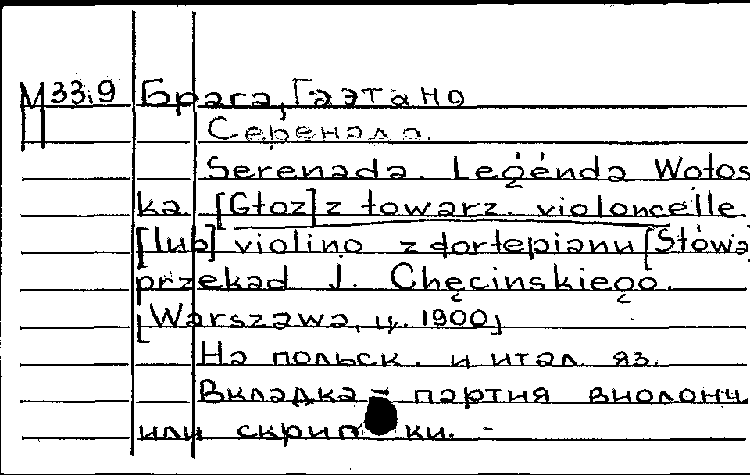 М33.9 Брага, Гаэтано
Серенада.
Serenada. Legenda Wołos
ka [Głoz] z towarz. violoncelle.
[lub] violino z dortepianu [Słowa
przekad J. Chęcinskiego.
[Warszawa, ц. 1900]
На польск. и итал яз.
Вкладка - партия виолонч
или скрипки. -